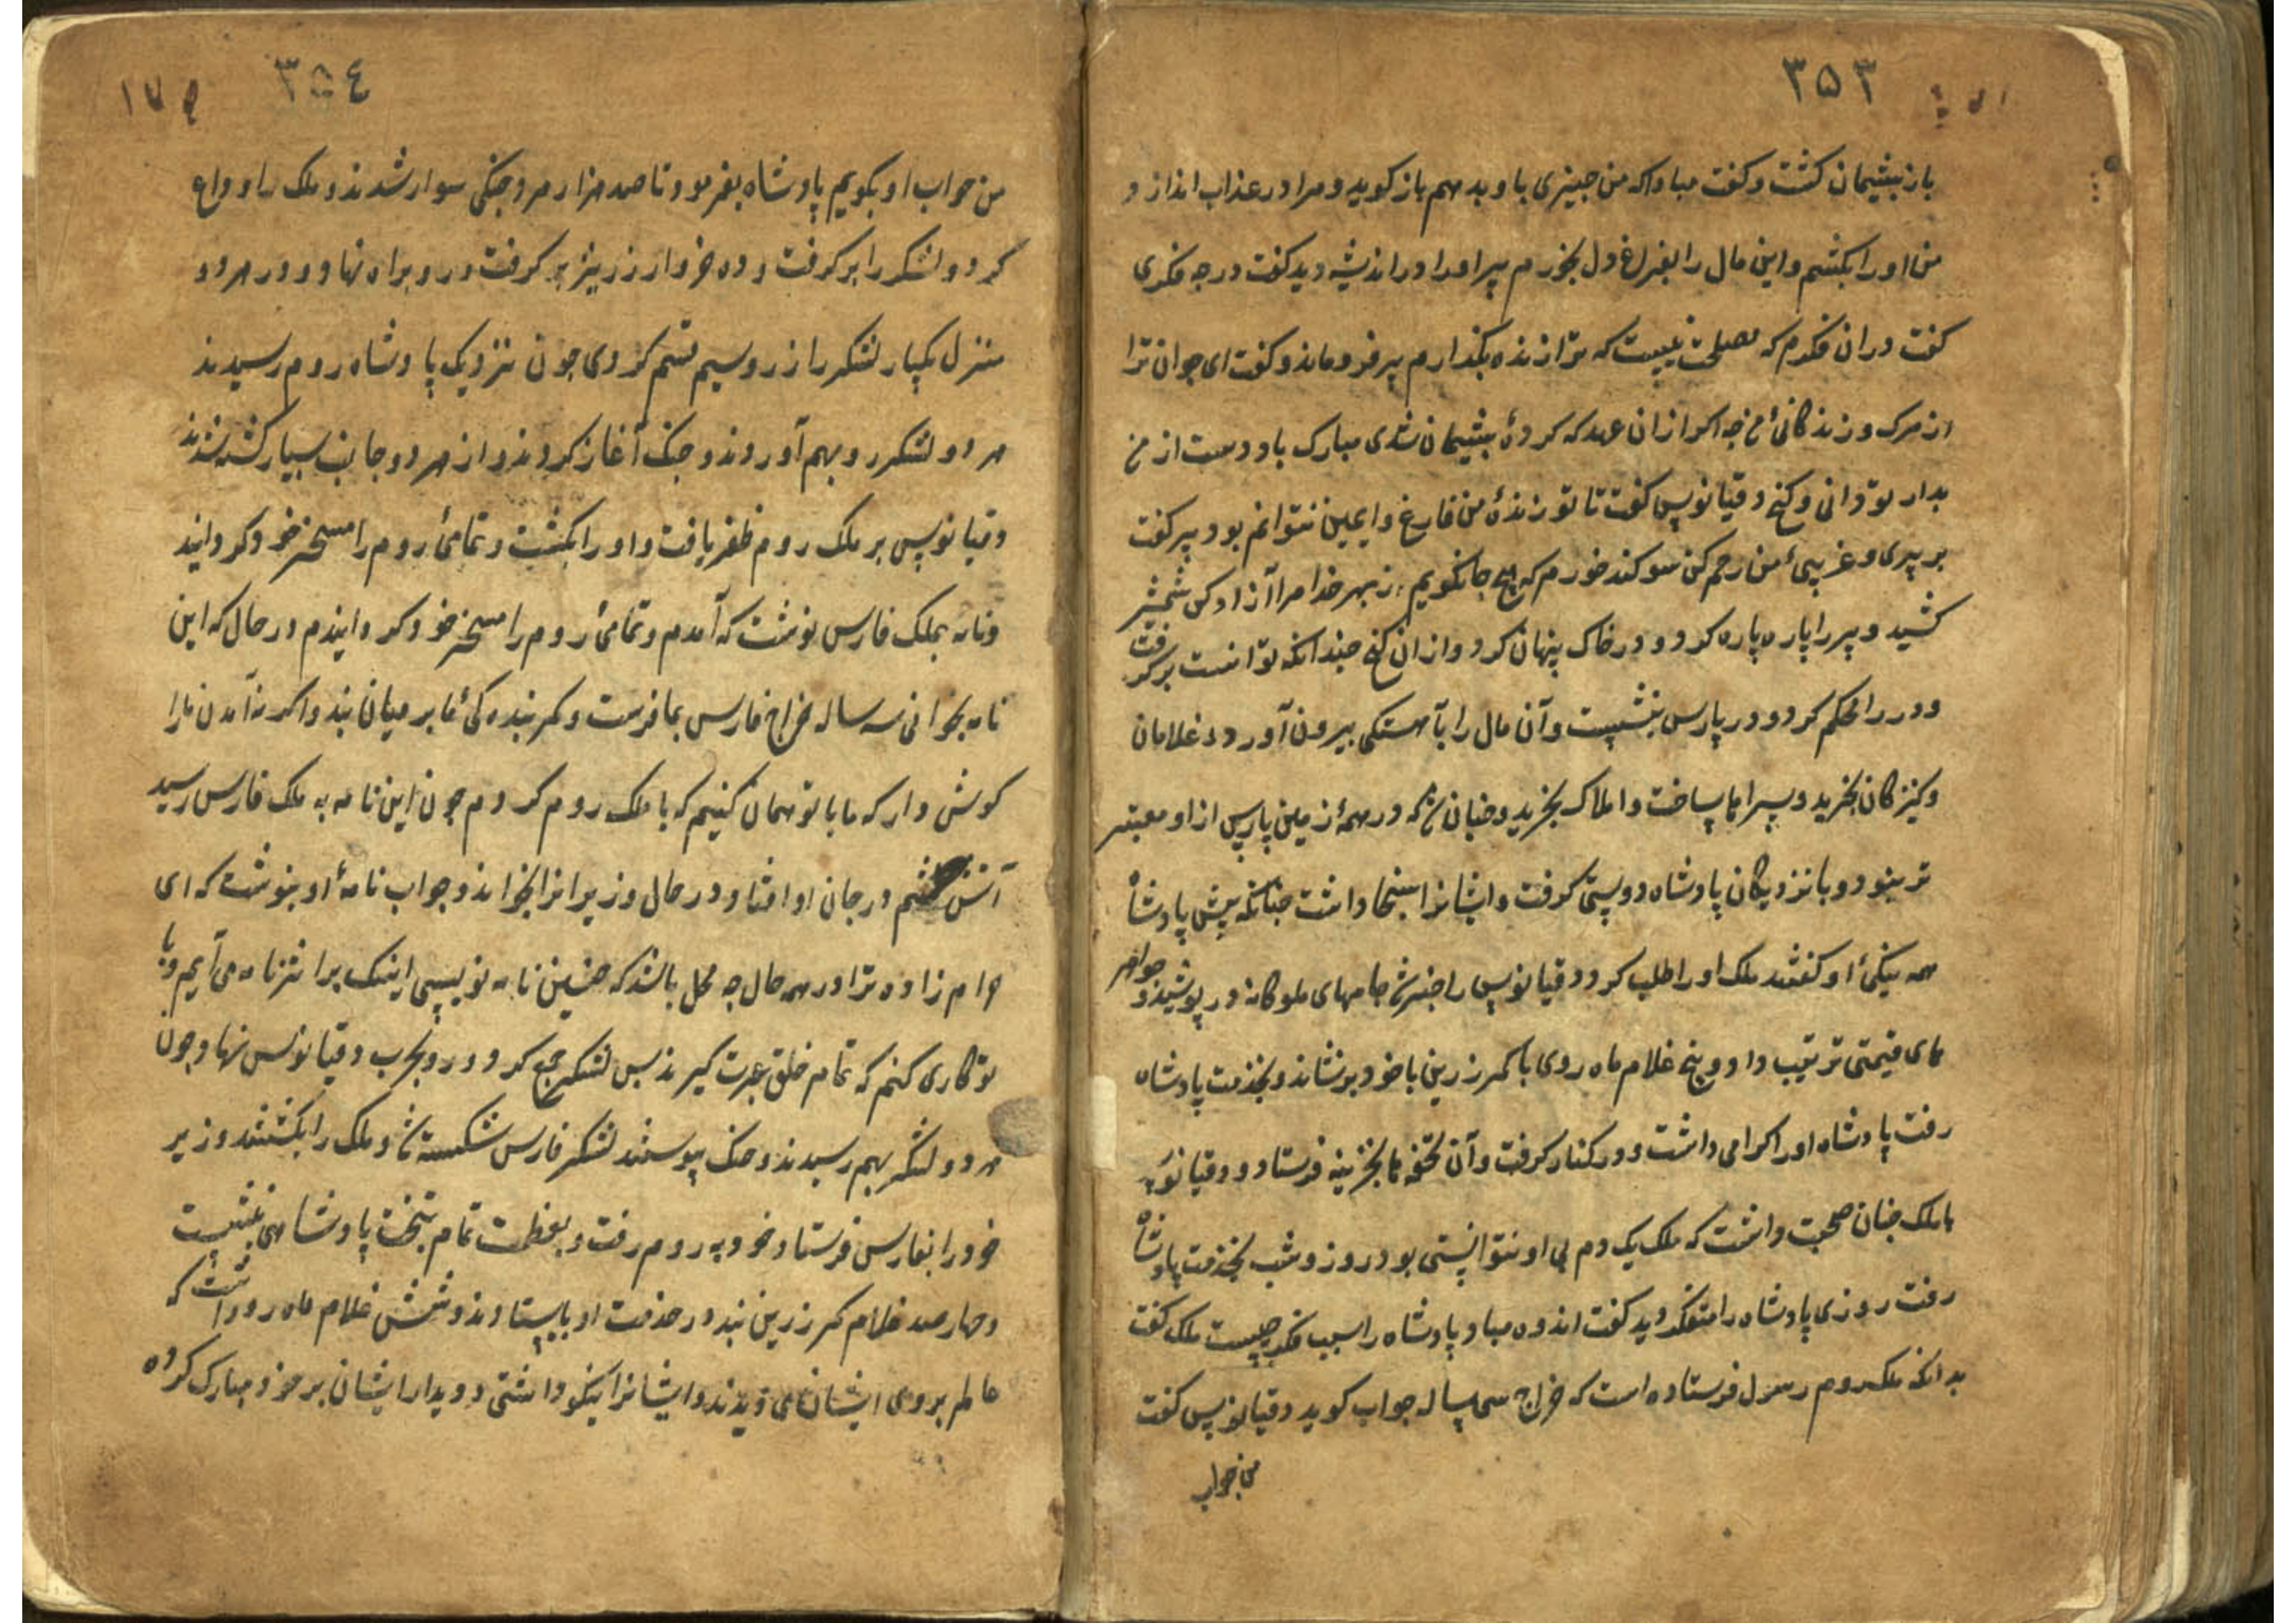 ۳۵۳
باز بشیمان کشت و کفت مبادا که من جیزی با وبد مهم باز کوید و مرا در عذاب اندازد و
من او را بکشم و این مال را بفراغ دل بخورم پیر او را در اندیشه دید کفت در جه فکری
کفت در ان فکرم که مصلحت نیست که ترا زنده بکذارم پیر فرو ماند و کفت ای جوان ترا
از مرک و زندکانئ من جه اکر از ان عهد که کردهٔ بشیمان شدی مبارک باد دست از من
بدار تو دانی و کنج دقیانوس کفت تا تو زندهٔ من فارغ و ایمین نتوانم بود پیر کفت
بر پیری و غریبئ من رحم کن سوکند خورم که هیچ جا نکویم از بهر خدا مرا آزاد کن شمشیر
کشید و پیر را پاره پاره کرد و در خاک پنهان کرد و از ان کنج جندانکه توانست بر کرفت
و در را محکم کرد و در پارس بنشست و آن مال را بآهستکی بیرون آورد و غلامان
و کنیزکان بخرید و سراها بساخت و املاک بخرید و جنان شد که در همهٔ زمین پارس از او معتبر
تر نبود و با نزدیکان پادشاه دوستی کرفت و ایشانرا سخا داشت جنانکه پیش پادشاه
همه نیکئ او کفتند ملک او را طلب کرد دقیانوس را خبر شد جامهای ملوکانه در پوشید و جواهر
های قیمتی ترتیب داد و پنج غلام ماه روی با کمر زرین با خود بنشاند و بخدمت پادشاه
رفت پادشاه او را کرامی داشت و در کنار کرفت و آن تحفه ها بخزینه فرستاد و دقیانوس
با ملک جنان صحبت داشت که ملک یک دم بی او نتوانستی بود روز و شب بخدمت پادشاه
رفت روزی پادشاه را متفکر دید کفت اندوه مباد پادشاه را سبب فکر چیست ملک کفت
بدانکه ملک روم رسول فرستاده است که خراج سی ساله جواب کوید دقیانوس کفت
من جواب
۳۵٤
۱۷۹
من جواب او بکویم پادشاه بفرمود تا صد هزار مرد جنکی سوار شدند و ملک را وداع
کرد و لشکر را بر کرفت و ده خروار زر نیز بر کرفت و رو براه نهاد و در هر دو
منزل یکبار لشکر را زر و سیم قسم کردی جون نزدیک پادشاه روم رسیدند
هر دو لشکر رو بهم آوردند و جنک آغاز کردند و از هر دو جانب بسیار کشته شدند
دقیانوس بر ملک روم ظفر یافت و او را بکشت و تمامئ روم را مسخر خود کردانید
و نامه بملک فارس نوشت که آمدم و تمامئ روم را مسخر خود کردانیدم در حال که این
نامه بخوانی سه ساله خراج فارس بما فرست و کمر بنده کئ ما بر میان بند و اکر نه آمدن ما را
کوش دار که ما با تو همان کنیم که با ملک روم کردم جون این نامه به ملک فارس رسید
آتش خشم در جان او افتاد در حال وزیرانرا بخواند و جواب نامهٔ او بنوشت که ای
حرام زاده ترا در همه حال جه محل باشد که جنین نامه نویسی اینک بر اثر نامه می آیم و با
تو کاری کنم که تمام خلق عبرت کیرند بس لشکر جمع کرد و رو بحرب دقیانوس نهاد جون
هر دو لشکر بهم رسیدند و جنک پیوستند لشکر فارس شکسته شد و ملک را بکشتند وزیر
خود را بفارس فرستاد و خود به روم رفت و بعظمت تمام بتخت پادشاهی بنشست
و جهار صد غلام کمر زرین بند در خدمت او بایستادند و شش غلام ماه رو داشت که
عالم بروی ایشان می دیدند و ایشانرا نیکو داشتی و دیدار ایشان بر خود مبارک کرده